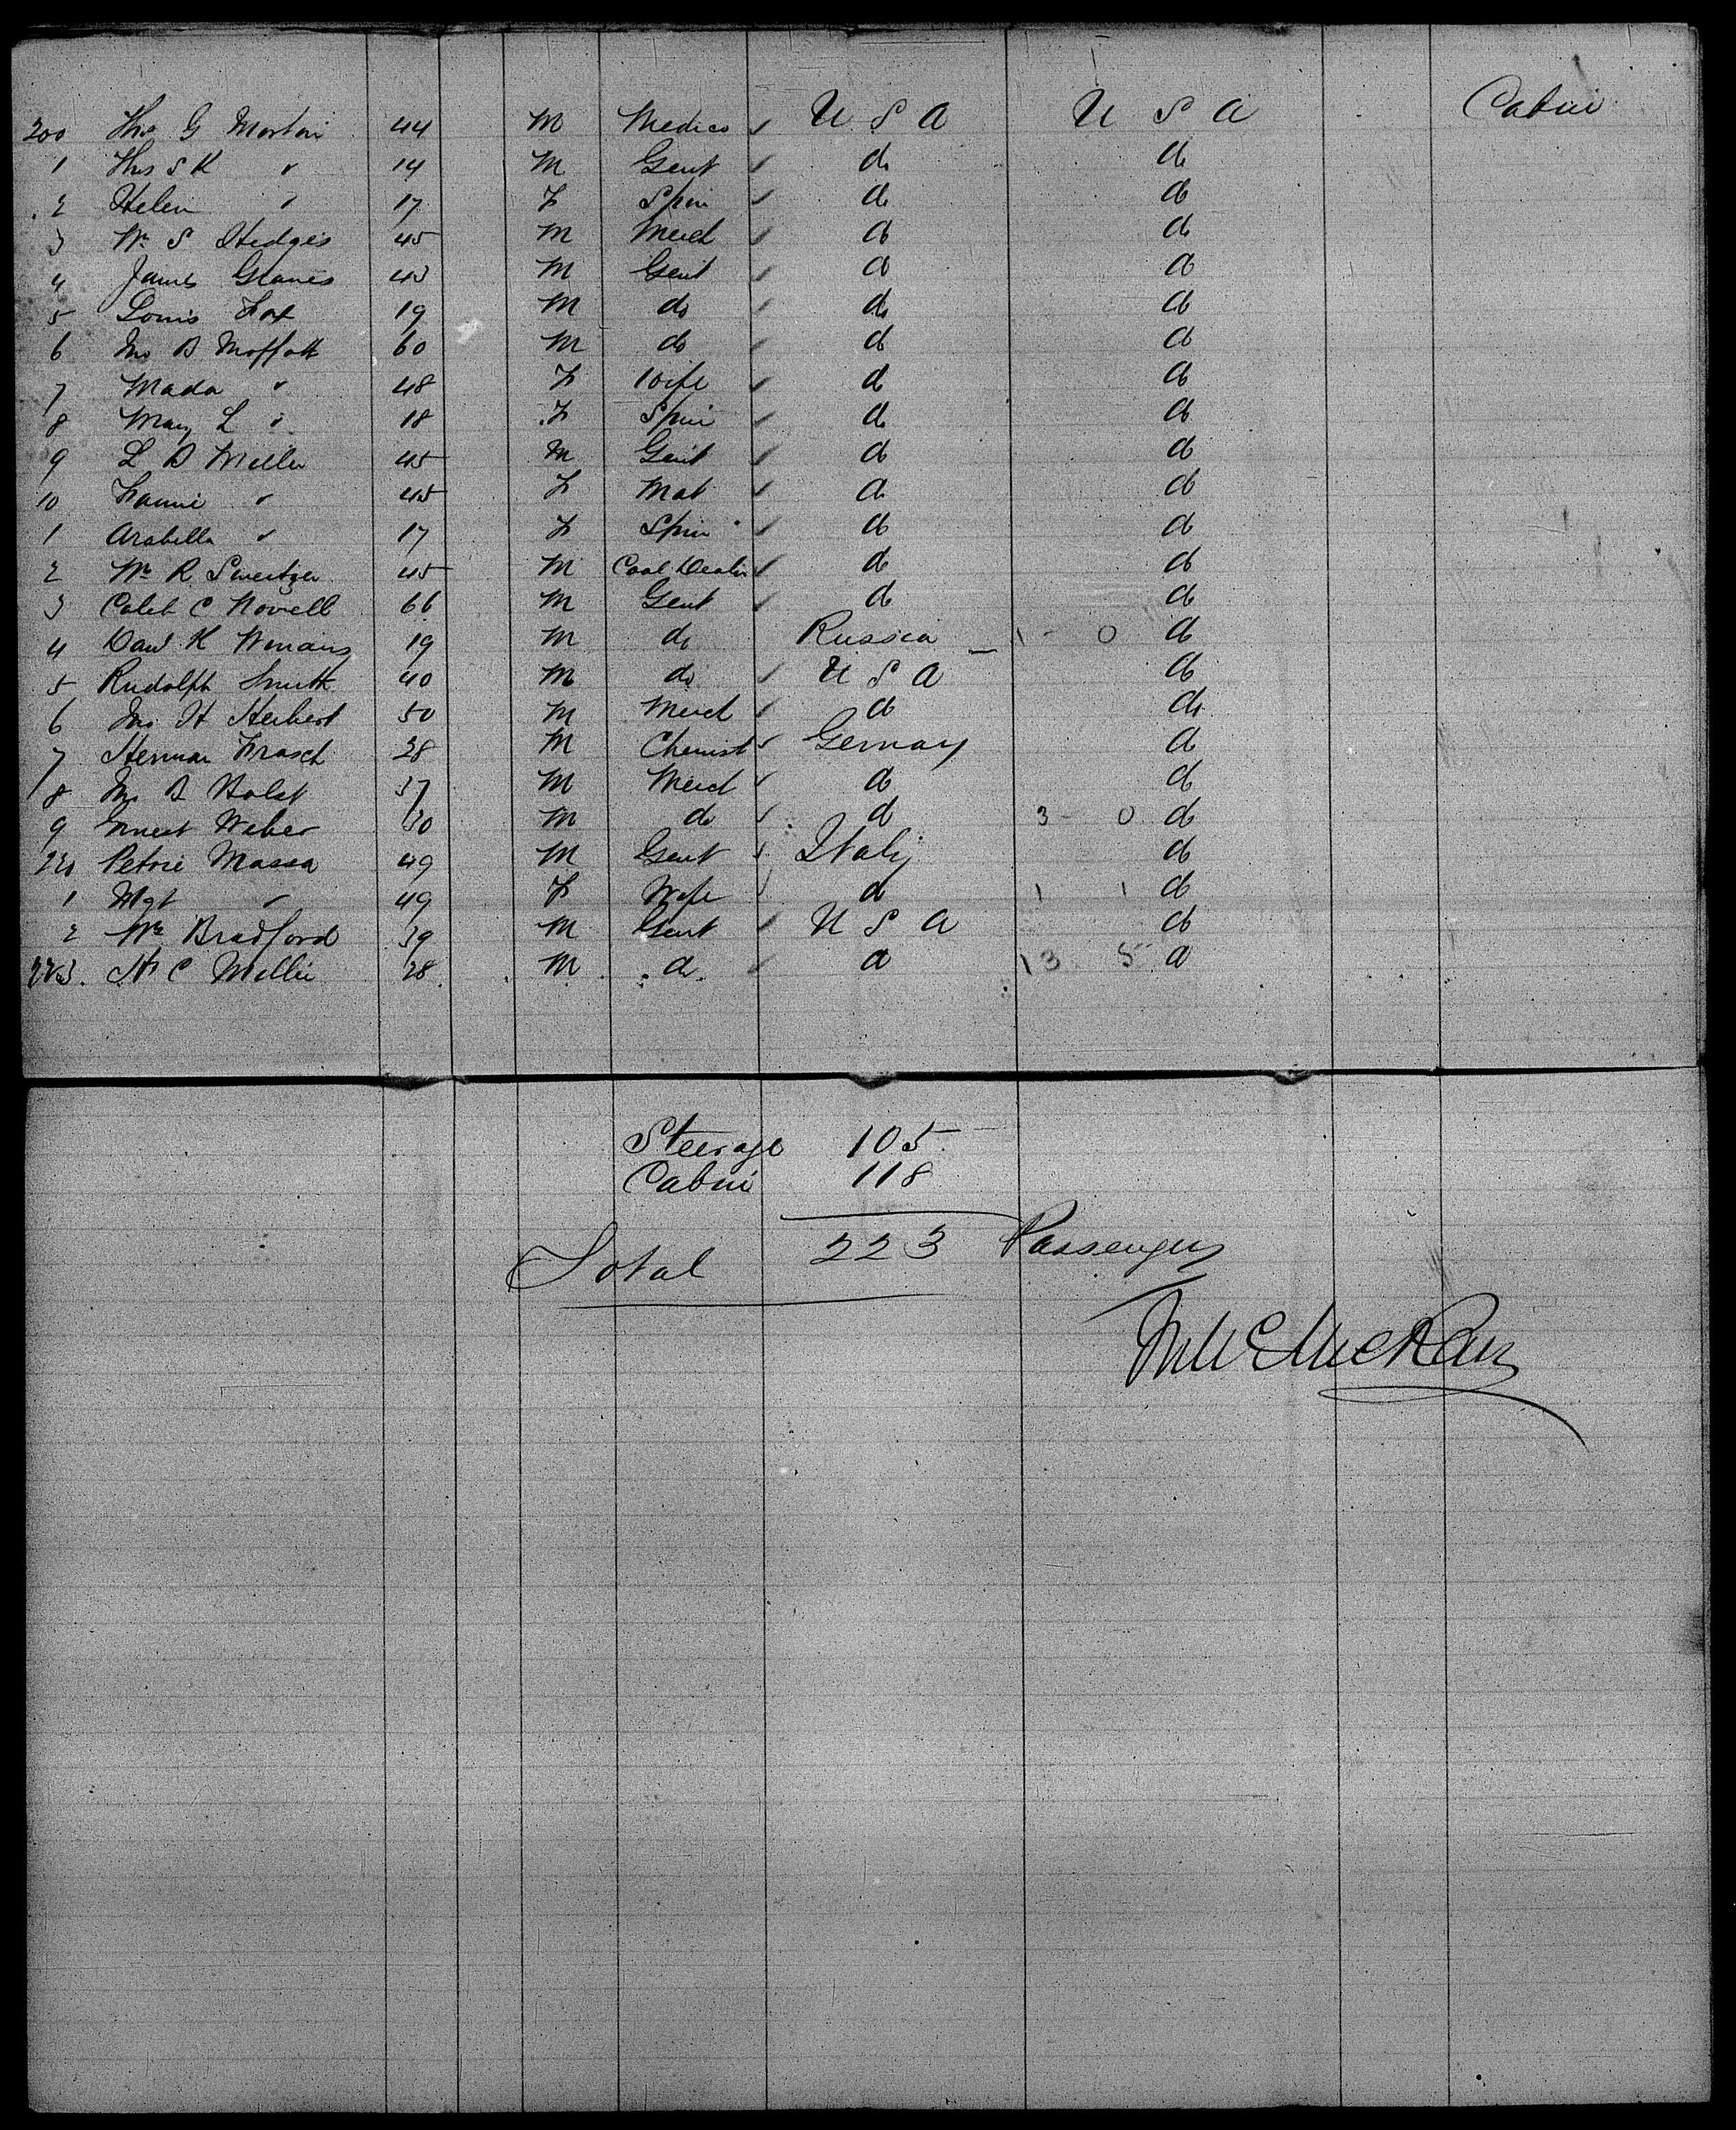 200 Thos G Morton 44 M Medico ✓ U S A U S A Cabin
1 Thos S K " 14 M Gent ✓ do do
2 Helen " 17 F Spin ✓ do do
3 Wm S Hedges 45 M Merch ✓ do do
4 James Graves 43 M Gent ✓ do do
5 Louis Fox 19 M do ✓ do do
6 Jno B Moffatt 60 M do ✓ do do
7 Mada " 48 F Wife ✓ do do
8 Mary L " 18 F Spin ✓ do do
9 L D Miller 45 M Gent ✓ do do
10 Fannie " 45 F Mat ✓ do do
1 Arabella " 17 F Spin ✓ do do
2 Wm R Sweitzer 45 M Coal Dealer ✓ do do
3 Caleb C Norvell 66 M Gent ✓ do do
4 Davd K Winans 19 M do Russia 1 - 0 do
5 Rudolph Smith 40 M do ✓ U S A do
6 Jno H Herbert 50 M Merch ✓ do do
7 Herman Frasch 38 M Chemist ✓ Gernay do
8 Jno B Holst 37 M Merch ✓ do do
9 Ernest Weber 30 M do ✓ do 3 - 0 do
220 Petrie Massa 49 M Gent ✓ Italy do
1 Mgt " 49 F Wife ✓ do 1 1 do
2 Wm Bradford 39 M Gent ✓ U S A do
223. H C Mellie 28 M do ✓ do 13 5 do
Steerage 105
Cabin 118
Total 223 Passengers